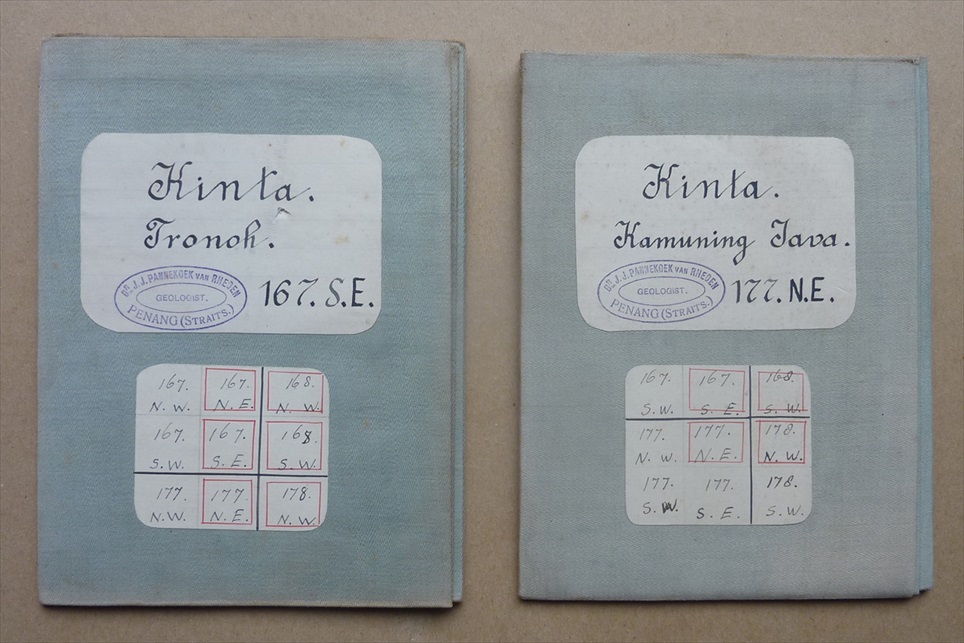 Kinta.
Tronoh.
DR. J. J. PANNEKOEK VAN RHEDEN
GEOLOGIST.
PENANG (STRAITS.)
167. S.E.
167. 167. 168.
N. W. N. E. N. W.
167. 167. 168
S. W. S. E. S. W.
177. 177. 178.
N. W. N. E. N. W.
Kinta.
Kamuning Java.
DR. J. J. PANNEKOEK VAN RHEDEN
GEOLOGIST.
PENANG (STRAITS.)
177. N.E.
167. 167. 168.
S. W. S. E. S. W.
177. 177. 178.
N. W. N. E. N. W.
177. 177. 178.
S. W. S. E. S. W.